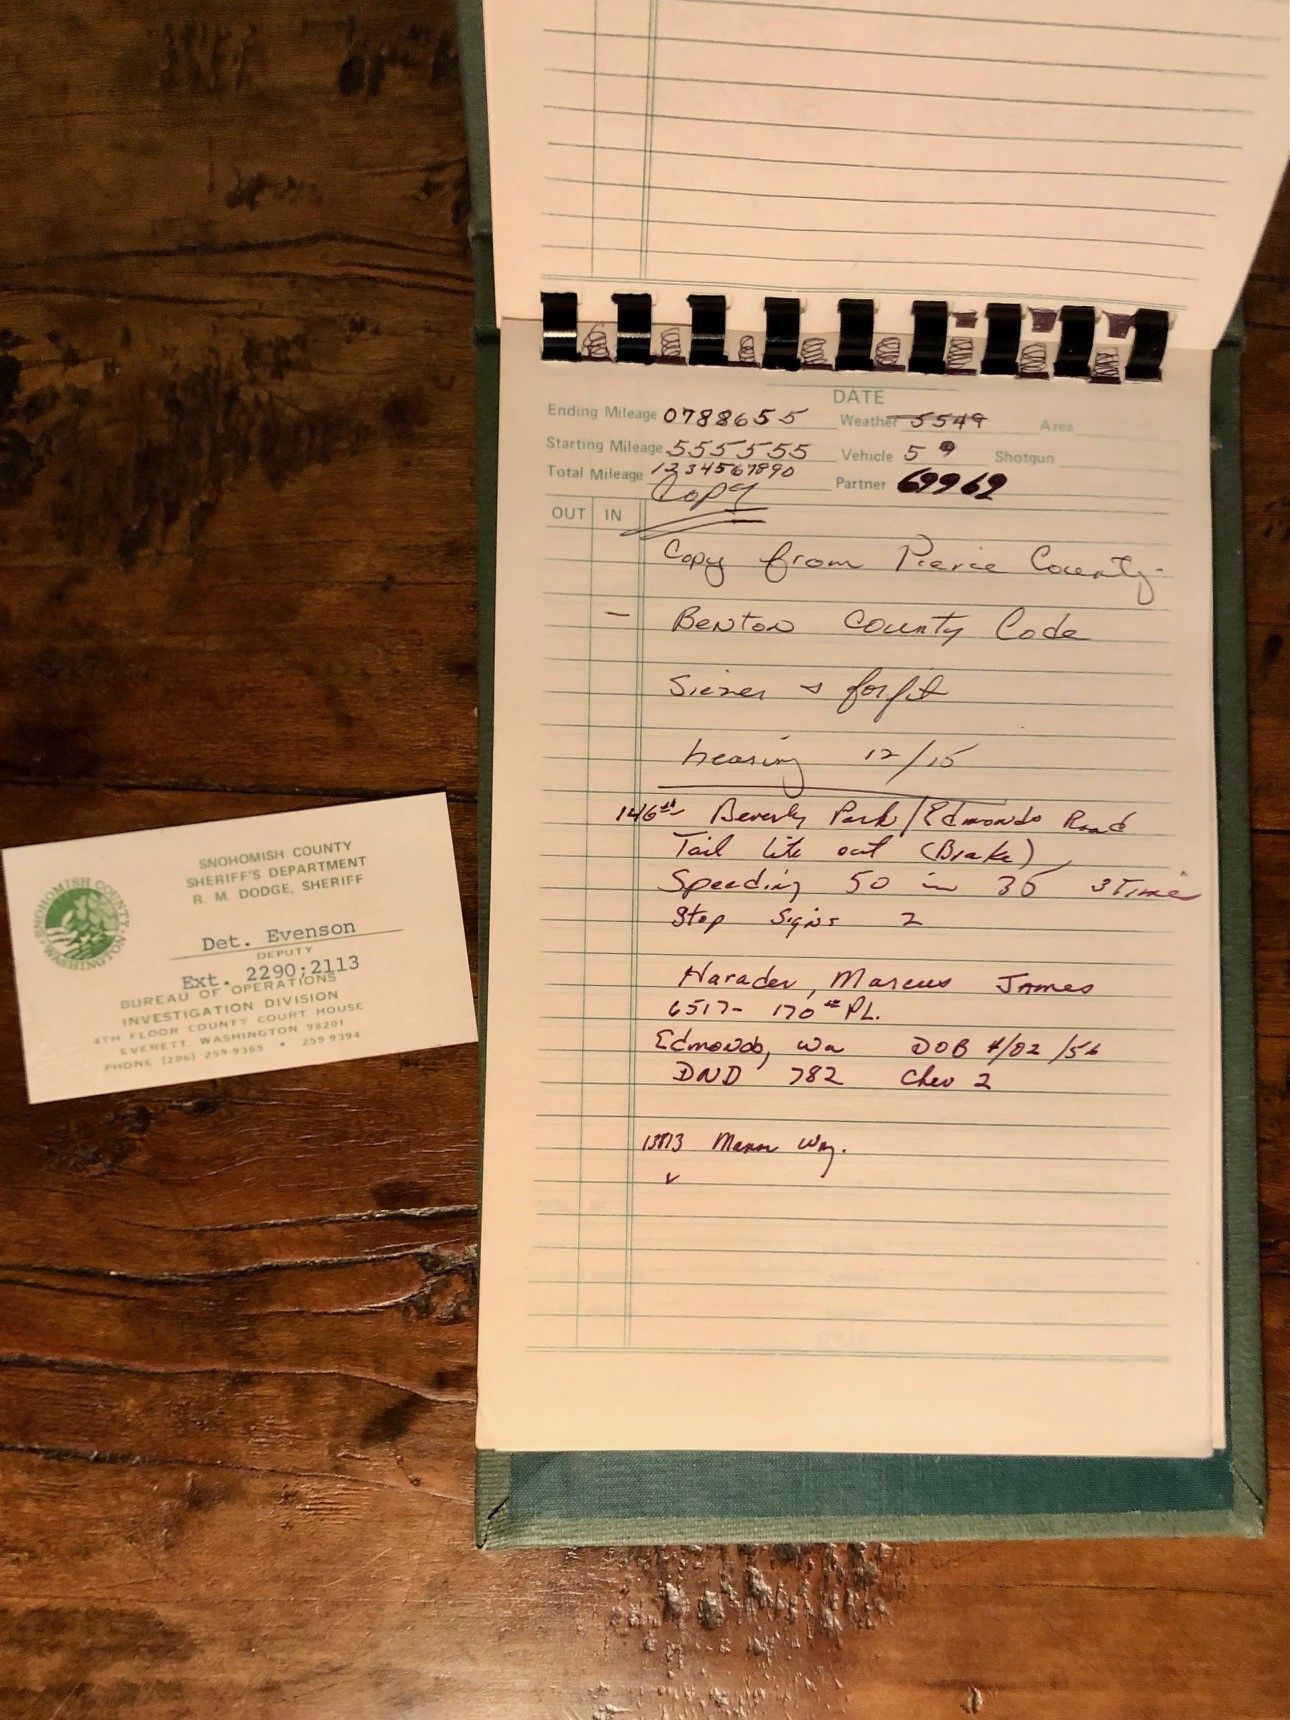 SNOHOMISH COUNTY
SHERIFF'S DEPARTMENT
R. M. DODGE, SHERIFF
Det. Evenson
DEPUTY
Ext. 2290;2113
BUREAU OF OPERATIONS
INVESTIGATION DIVISION
4TH FLOOR COUNTY COURT HOUSE
EVERETT WASHINGTON 98201
PHONE (206) 259 9365 • 259 9394
SNOHOMISH COUNTY WASHINGTON
DATE
Ending Mileage 0788655 Weather 5549 Area
Starting Mileage 555555 Vehicle 59 Shotgun
Total Mileage 1234567890 Partner 69969
Copy
OUT IN
Copy from Pierce County
- Benton County Code
& forfit
hearing 12/15
146th Beverly Park/Edmonds Road
Tail lite out (Brake),
Speeding 50 in 35 3 Time
Stop Signs 2
Harader, Marcus James
6517- 170th PL.
Edmonds, Wa DOB 4/02/56
DND 782 Chev 2
13813 Manor Way.